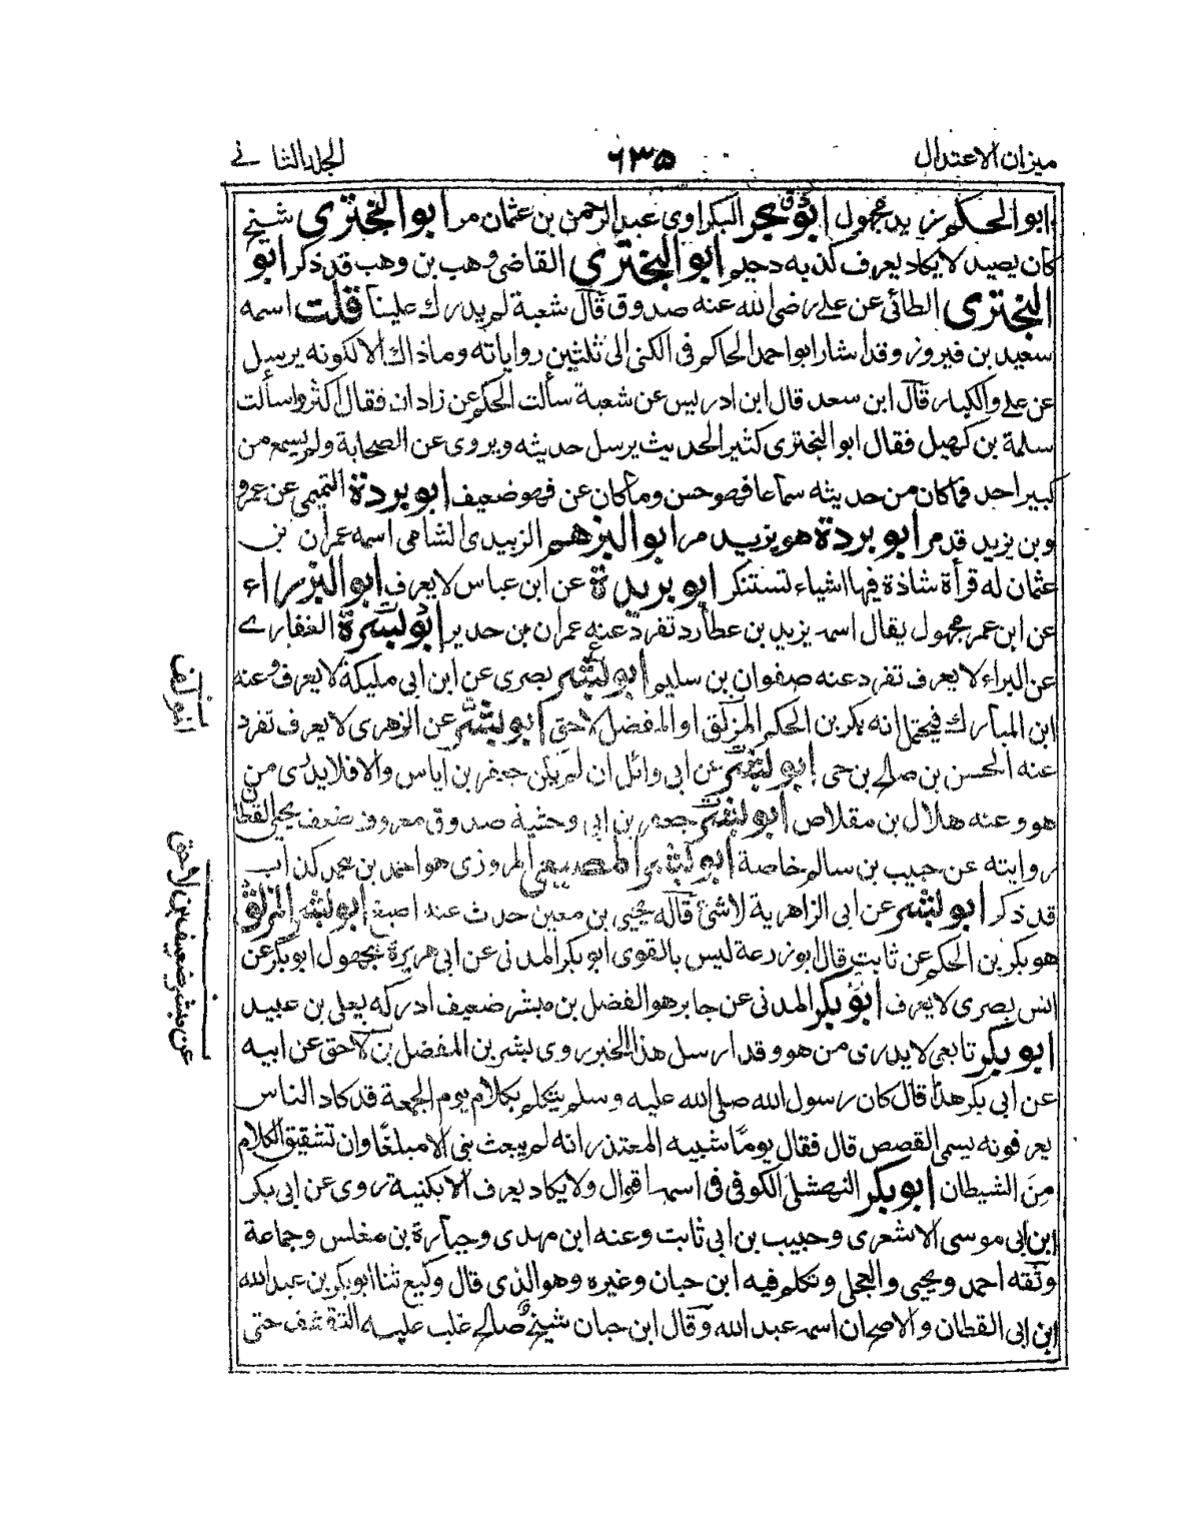 ميزان الاعتدال
٦٣٥
المجلد الثانے
ابو الحكم زيد مجهول ابو بحر البكراوى عبد الرحمن بن عثمان مر ابو البخترى شيخ
كان بصيد لا يكاد يعرف كذبه دحيم ابو البخترى القاضى وهب بن وهب قد ذكر ابو
البخترى الطائى عن على رضى الله عنه صدوق قال شعبة لم يدرك عليا قلت اسمه
سعيد بن فيروز وقد اشار ابو احمد الحاكم فى الكنى الى ثلثين رواياته وما ذاك الا لكونه يرسل
عن على والكبار قال ابن سعد قال ابن ادريس عن شعبة سألت الحكم عن زاذان فقال اكثر وسألت
سلمة بن كهيل فقال ابو البخترى كثير الحديث يرسل حديثه ويروى عن الصحابة ولم يسمع من
كبير احد فما كان من حديثه سماعا فهو حسن وما كان عن فهو ضعيف ابو بردة التميمى عن عمرو
وبن يزيد قد مر ابو بردة هو بزيد مر ابو البزهسم الزبيدى الشامى اسمه عمران بن
عثمان له قرأة شاذة فيها اشياء تستنكر ابو بريدة عن ابن عباس لا يعرف ابو البزراء
عن ابن عمر مجهول يقال اسمه يزيد بن عطارد تفرد عنه عمران بن حدير ابو بسرة الغفارے
عن البراء لا يعرف تفرد عنه صفوان بن سليم ابو بشر بصرى عن ابن ابى مليكة لا يعرف وعنه
ابن المبارك فيحتمل انه بكر بن الحكم المزلق او المفضل لاحق ابو بشر عن الزهرى لا يعرف تفرد
عنه الحسن بن صالح بن حى ابو بشر عن ابى وائل ان لم يكن جعفر بن اياس والا فلا يدرى من
هو وعنه هلال بن مقلاص ابو بشر جعفر بن ابى وحشية صدوق معروف ضعف يحيى القطان
روايته عن حبيب بن سالم خاصة ابو بشر المصيعى المروزى هو احمد بن محمد كذاب
قد ذكر ابو بشر عن ابى الزاهرية لاشئ قاله يحيى بن معين حدث عنه اصبغ ابو بشر المزلق
هو بكر بن الحكم عن ثابت قال ابو زرعة ليس بالقوى ابو بكر المدنى عن ابى هريرة مجهول ابو بكر عن
انس بصرى لا يعرف ابو بكر المدنى عن جابر هو الفضل بن مبشر ضعيف ادركه يعلى بن عبيد
ابو بكر تابعى لا يدرى من هو وقد ارسل هذا الخبر روى بشر بن المفضل بن لاحق عن ابيه
عن ابى بكر هذا قال كان رسول الله صلى الله عليه وسلم يتكلم بكلام يوم الجمعة قد كاد الناس
يعرفونه يسمى القصص قال فقال يوما شبيه المعتذر انه لم يبعث نبى الا مبلغا وان تشقيق الكلام
من الشيطان ابو بكر النهشلى الكوفى فى اسمه اقوال ولا يكاد يعرف الا بكنيته روى عن ابى بكر
ابن ابى موسى الاشعرى وحبيب بن ابى ثابت وعنه ابن مهدى وجبارة بن مغلس وجماعة
وثقه احمد ويحيى والعجلى وتكلم فيه ابن حبان وغيره وهو الذى قال وكيع ثنا ابو بكر بن عبد الله
ابن ابى القطان والاصح ان اسمه عبد الله وقال ابن حبان شيخ صالح غلب عليه التقشف حتى
عن مبشر ضعيف بن لاحق